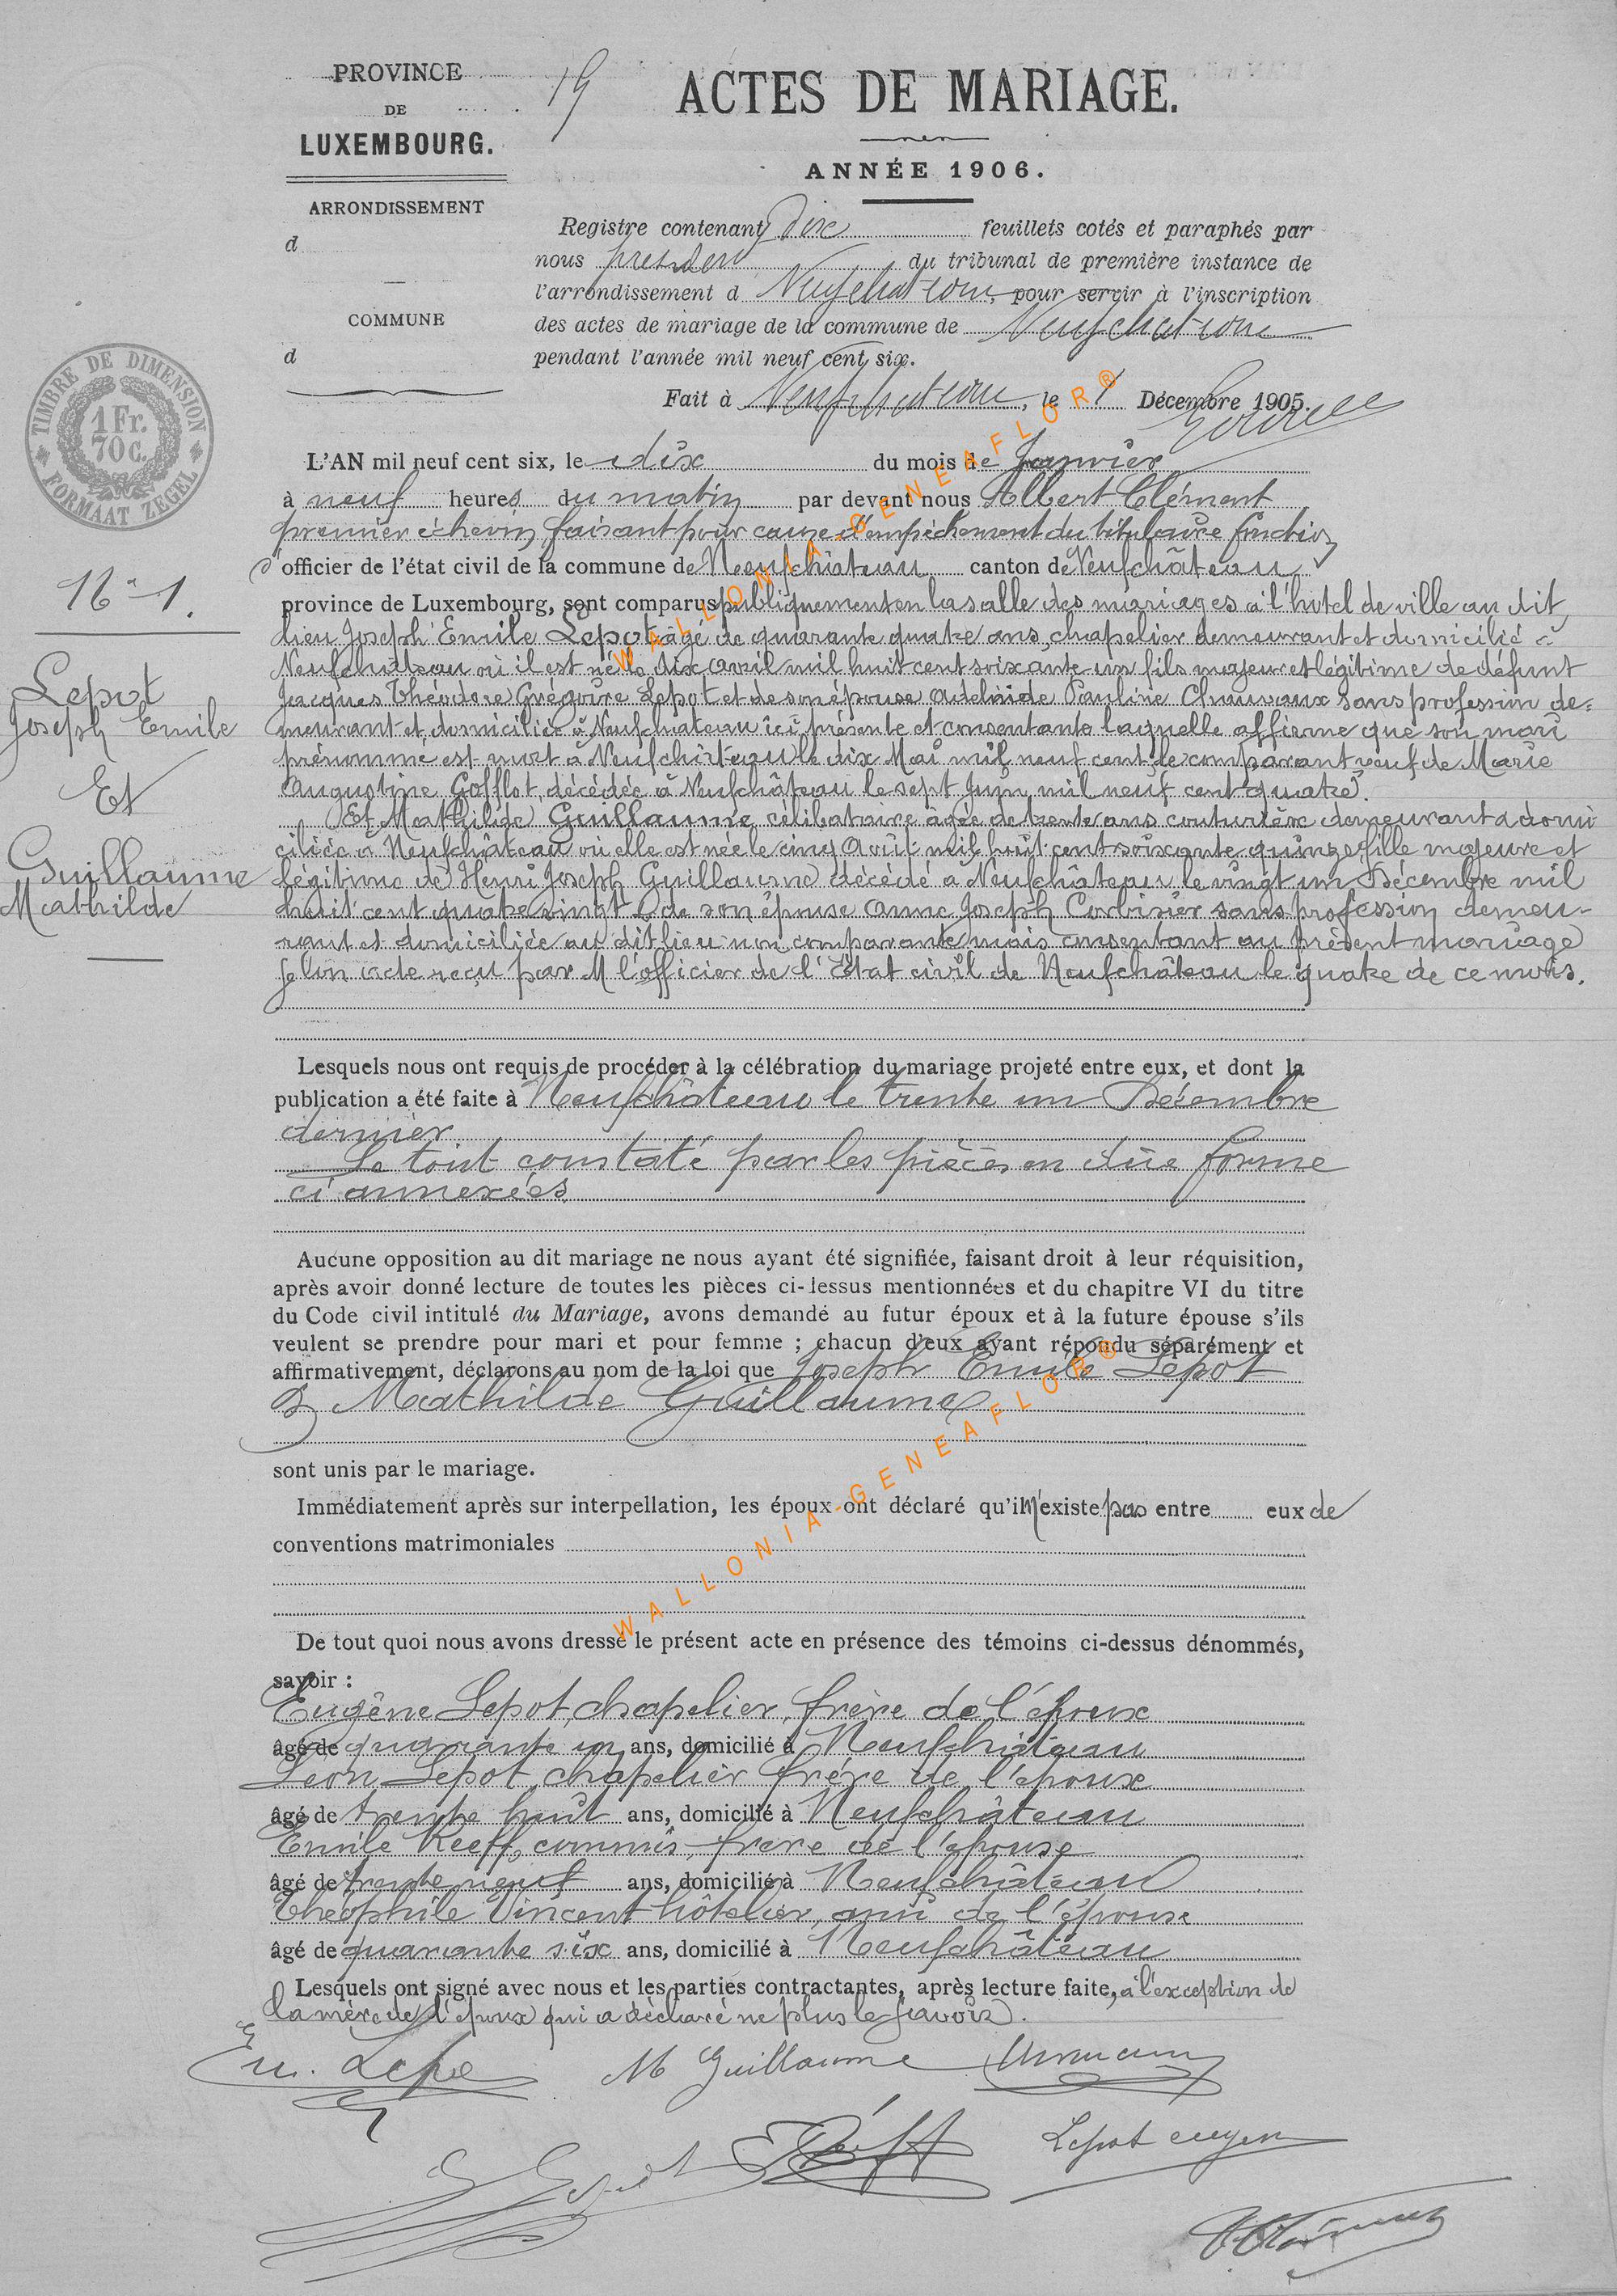 PROVINCE
DE
LUXEMBOURG.
ARRONDISSEMENT
d
COMMUNE
d
19
ACTES DE MARIAGE.
ANNÉE 1906.
Registre contenant Dix feuillets cotés et paraphés par
nous président du tribunal de première instance de
l'arrondissement d Neufchateau, pour servir à l'inscription
des actes de mariage de la commune de Neufchateau
pendant l'année mil neuf cent six.
Fait à Neufchateau, le 1 Décembre 1905.
TIMBRE DE DIMENSION
1 Fr.
70 c.
FORMAAT ZEGEL
L'AN mil neuf cent six, le dix du mois de Janvier
à neuf heures du matin par devant nous Albert Clément
premier échevin, faisant pour cause d'empêchement du titulaire fonction
d'officier de l'état civil de la commune de Neufchâteau canton de Neufchâteau
Nº 1.
Lepot
Joseph Emile
Et
Guillaume
Mathilde
province de Luxembourg, sont comparus publiquement en la salle des mariages à l'hotel de ville au dit
lieu Joseph Emile Lepot âgé de quarante quatre ans, chapelier demeurant et domicilié à
Neufchâteau où il est né le dix avril mil huit cent soixante un fils majeur et légitime de défunt
Jacques Théodore Grégoire Lepot et de son épouse Adelaide Pauline Chauvaux sans profession de=
meurant et domiciliée à Neufchateau ici présente et consentante laquelle affirme que son mari
prénommé est mort à Neufchâteau le dix Mai mil neuf cent, le comparant veuf de Marie
Augustine Gofflot, décédée à Neufchâteau le sept Juin mil neuf cent quatre.
Et Mathilde Guillaume, célibataire agée de trente ans couturière demeurant & domi
ciliée à Neufchâteau où elle est née le cinq Août mil huit cent soixante quinze fille majeure et
légitime de Henri Joseph Guillaume décédé à Neufchâteau le vingt un Décembre mil
huit cent quatre vingt & de son épouse Anne Joseph Corbisier sans profession demeu-
rant et domiciliée au dit lieu non comparante mais consentant au présent mariage
selon acte reçu par M l'officier de l'Etat civil de Neufchâteau le quatre de ce mois.
Lesquels nous ont requis de procéder à la célébration du mariage projeté entre eux, et dont la
publication a été faite à Neufchâteau le trente un Décembre
dernier
Le tout constaté par les pièces en due forme
ci annexées
Aucune opposition au dit mariage ne nous ayant été signifiée, faisant droit à leur réquisition,
après avoir donné lecture de toutes les pièces ci-dessus mentionnées et du chapitre VI du titre
du Code civil intitulé du Mariage, avons demandé au futur époux et à la future épouse s'ils
veulent se prendre pour mari et pour femme ; chacun d'eux ayant répondu séparément et
affirmativement, déclarons au nom de la loi que Joseph Emile Lepot
& Mathilde Guillaume
sont unis par le mariage.
Immédiatement après sur interpellation, les époux ont déclaré qu'il n'existe pas entre eux de
conventions matrimoniales
De tout quoi nous avons dressé le présent acte en présence des témoins ci-dessus dénommés,
savoir :
Eugène Lepot, chapelier, frère de l'époux
âgé de quarante un ans, domicilié à Neufchâteau
Leon Lepot, chapelier frère de l'époux
âgé de trente huit ans, domicilié à Neufchâteau
Emile Reeff, commis, frère de l'épouse
âgé de trente neuf ans, domicilié à Neufchâteau
Théophile Vincent hôtelier, ami de l'épouse
âgé de quarante six ans, domicilié à Neufchâteau
Lesquels ont signé avec nous et les parties contractantes, après lecture faite, à l'exception de
la mère de l'époux qui a déclaré ne plus le savoir.
Em. Lepo M Guillaume
Lepot Reeff Lepot eugen
WALLONIA-GENEAFLOR®
WALLONIA-GENEAFLOR®